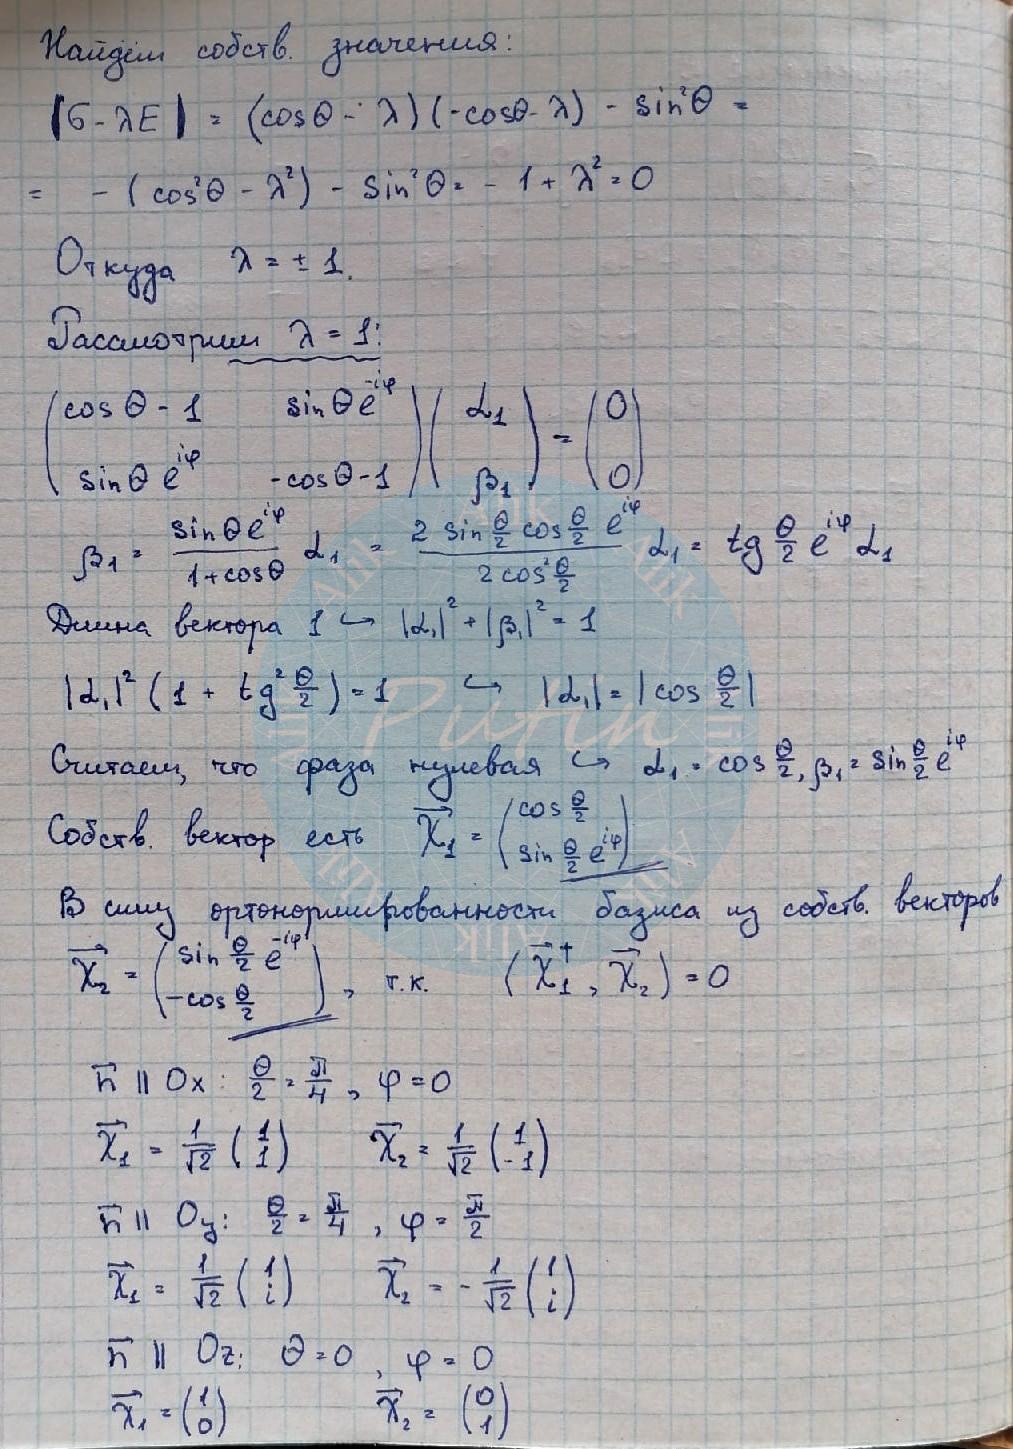 Найдём собств. значения:
|σ - λE| = (cosθ - λ)(-cosθ - λ) - sin²θ =
= -(cos²θ - λ²) - sin²θ = -1 + λ² = 0
Откуда λ = ± 1.
Рассмотрим λ = 1:
( cosθ - 1   sinθ e^{-iφ} ) ( α₁ ) = ( 0 )
( sinθ e^{iφ}   -cosθ - 1 ) ( β₁ )   ( 0 )
β₁ = \frac{sinθ e^{iφ}}{1 + cosθ} α₁ = \frac{2 sin\frac{θ}{2} cos\frac{θ}{2} e^{iφ}}{2 cos²\frac{θ}{2}} α₁ = tg\frac{θ}{2} e^{iφ} α₁
Длина вектора 1 ↪ |α₁|² + |β₁|² = 1
|α₁|² (1 + tg²\frac{θ}{2}) = 1 ↪ |α₁| = |cos\frac{θ}{2}|
Считаем, что фаза нулевая ↪ α₁ = cos\frac{θ}{2}, β₁ = sin\frac{θ}{2} e^{iφ}
Собств. вектор есть \vec{χ}₁ = ( cos\frac{θ}{2} ; sin\frac{θ}{2} e^{iφ} )
В силу ортонормированности базиса из собств. векторов
\vec{χ}₂ = ( sin\frac{θ}{2} e^{-iφ} ; -cos\frac{θ}{2} ), т.к. (\vec{χ}₁^†, \vec{χ}₂) = 0
\vec{n} || Ox: \frac{θ}{2} = \frac{π}{4}, φ = 0
\vec{χ}₁ = \frac{1}{√2} ( 1 ; 1 )   \vec{χ}₂ = \frac{1}{√2} ( 1 ; -1 )
\vec{n} || Oy: \frac{θ}{2} = \frac{π}{4}, φ = \frac{π}{2}
\vec{χ}₁ = \frac{1}{√2} ( 1 ; i )   \vec{χ}₂ = -\frac{1}{√2} ( 1 ; i )
\vec{n} || Oz: θ = 0, φ = 0
\vec{χ}₁ = ( 1 ; 0 )   \vec{χ}₂ = ( 0 ; 1 )
Putin
Alik Alik Alik Alik Alik Alik Alik Alik